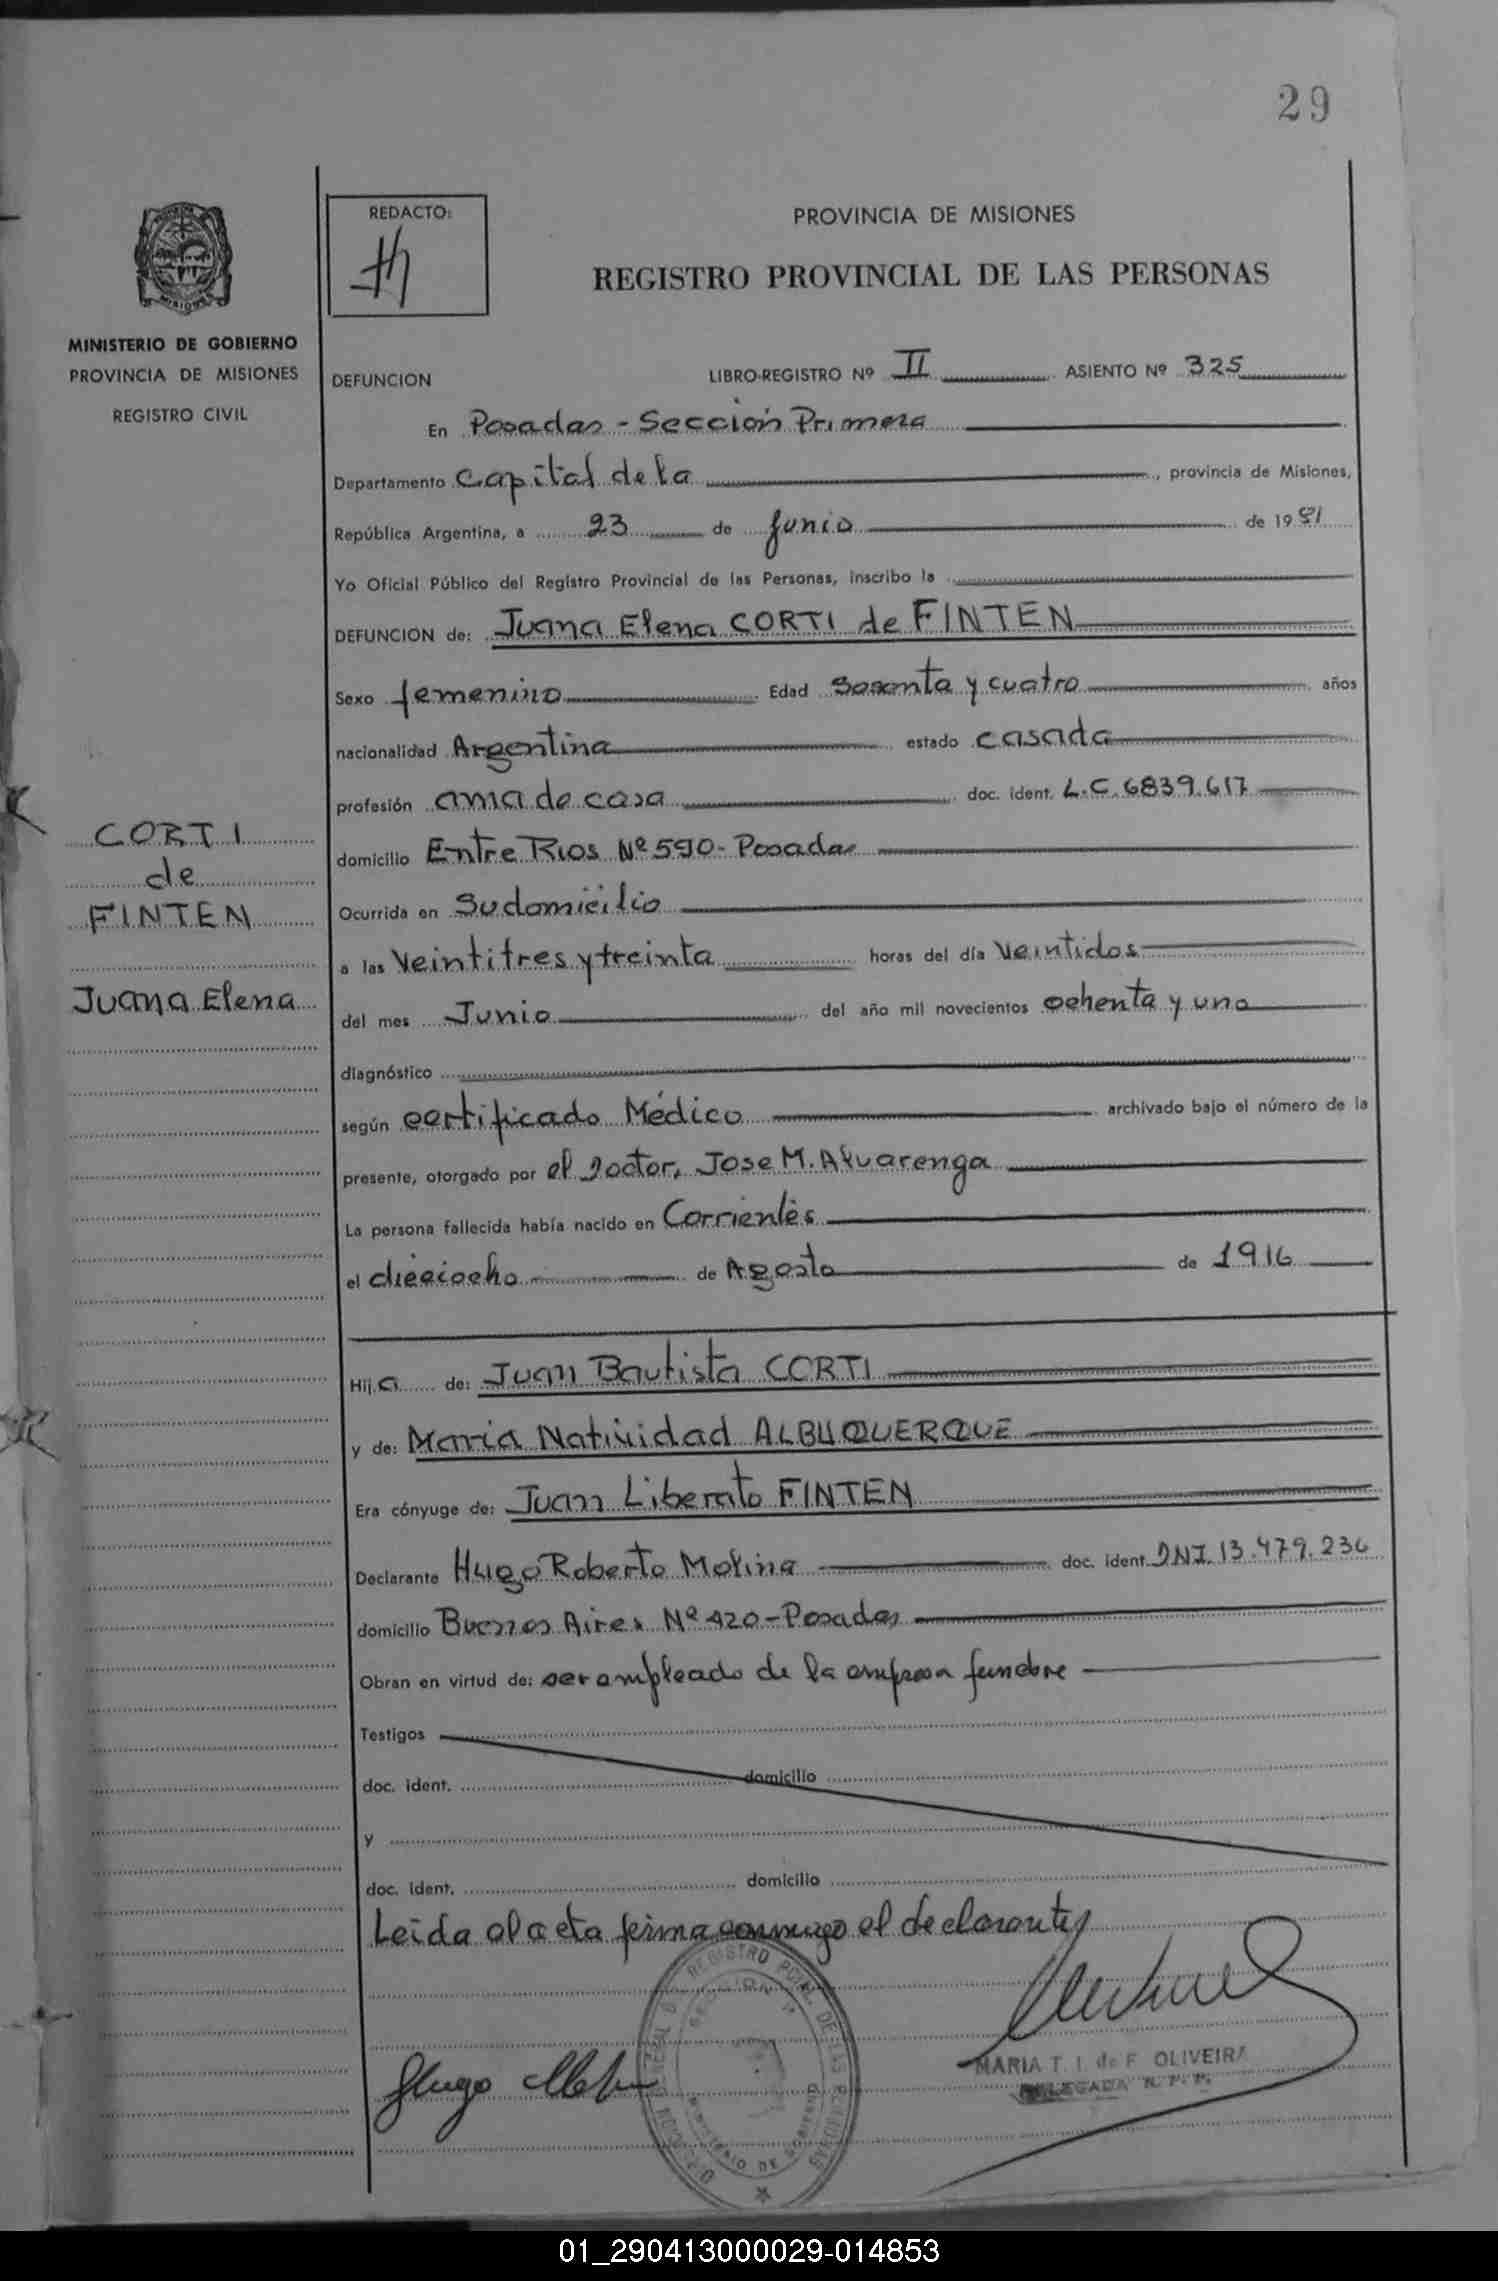 29
REDACTO:
PROVINCIA DE MISIONES
REGISTRO PROVINCIAL DE LAS PERSONAS
MINISTERIO DE GOBIERNO
PROVINCIA DE MISIONES
REGISTRO CIVIL
DEFUNCION LIBRO-REGISTRO Nº II ASIENTO Nº 325
En Posadas - Sección Primera
Departamento Capital de la, provincia de Misiones,
República Argentina, a 23 de Junio de 1981
Yo Oficial Público del Registro Provincial de las Personas, inscribo la
DEFUNCION de: Juana Elena CORTI de FINTEN
Sexo femenino Edad Sesenta y cuatro años
nacionalidad Argentina estado casada
profesión ama de casa doc. ident. L.C. 6839.617
CORTI
de
FINTEN
Juana Elena
domicilio Entre Rios Nº 590 - Posadas
Ocurrida en Su domicilio
a las Veintitres y treinta horas del día Veintidos
del mes Junio del año mil novecientos ochenta y uno
diagnóstico
según certificado Médico archivado bajo el número de la
presente, otorgado por el Doctor, Jose M. Alvarenga
La persona fallecida había nacido en Corrientes
el dieciocho de Agosto de 1916
Hija de: Juan Bautista CORTI
y de: Maria Natividad ALBUQUERQUE
Era cónyuge de: Juan Liberato FINTEN
Declarante Hugo Roberto Molina doc. ident. DNI. 13.479.236
domicilio Buenos Aires Nº 420 - Posadas
Obran en virtud de: ser empleado de la empresa funebre
Testigos
doc. ident. domicilio
y
doc. ident. domicilio
Leida el acta firma conmigo el declarante
REGISTRO PCIAL. DE LAS PERSONAS
SECCION 1ª
MINISTERIO DE GOBIERNO
Hugo
MARIA T. I. de F. OLIVEIRA
DELEGADA R. P. P.
01_290413000029-014853